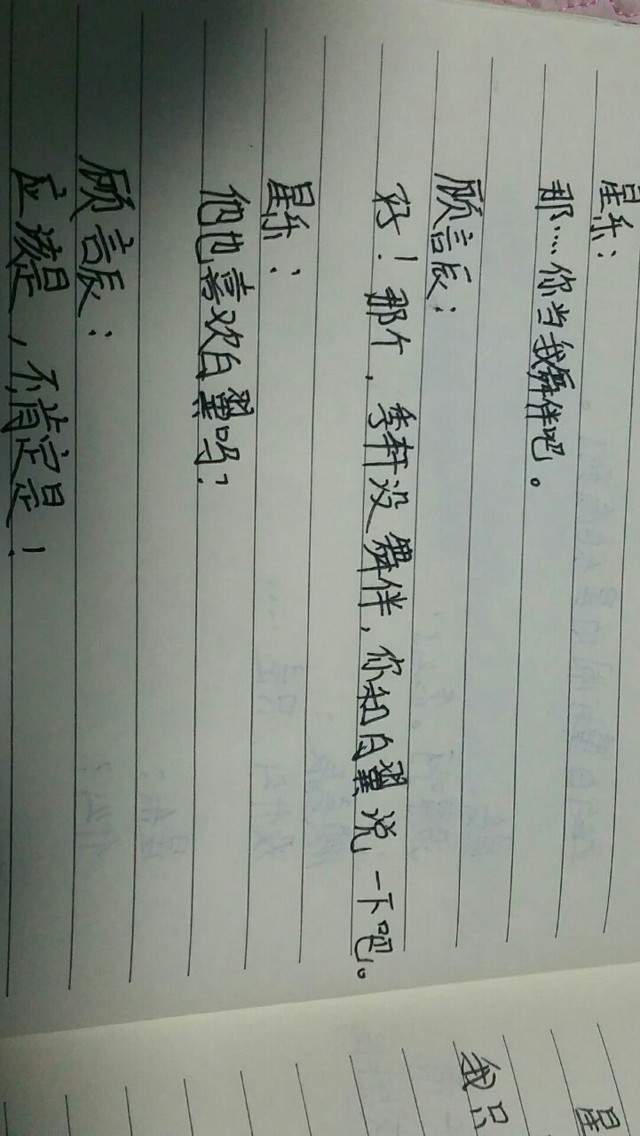 星乐：
那….你当我舞伴吧。
顾言辰：
好！那个，季轩没舞伴，你和白翼说一下吧。
星乐：
他也喜欢白翼吗？
顾言辰：
应该是，不，肯定是！
星
我只